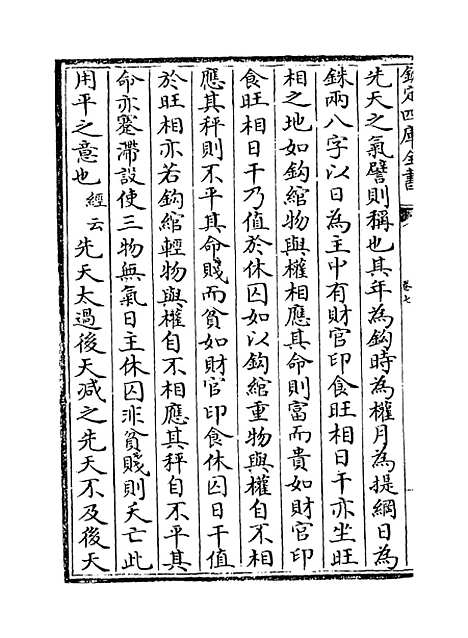 欽定四庫全書
卷七
先天之氣譬則稱也其年為鈎時為權月為提綱日為
銖兩八字以日為主中有財官印食旺相日干亦坐旺
相之地如鈎綰物與權相應其命則富而貴如財官印
食旺相日干乃值於休囚如以鈎綰重物與權自不相
應其秤則不平其命賤而貧如財官印食休囚日干值
於旺相亦若鈎綰輕物與權自不相應其秤自不平其
命亦蹇滯設使三物無氣日主休囚非貧賤則夭亡此
用平之意也經云先天太過後天減之先天不及後天